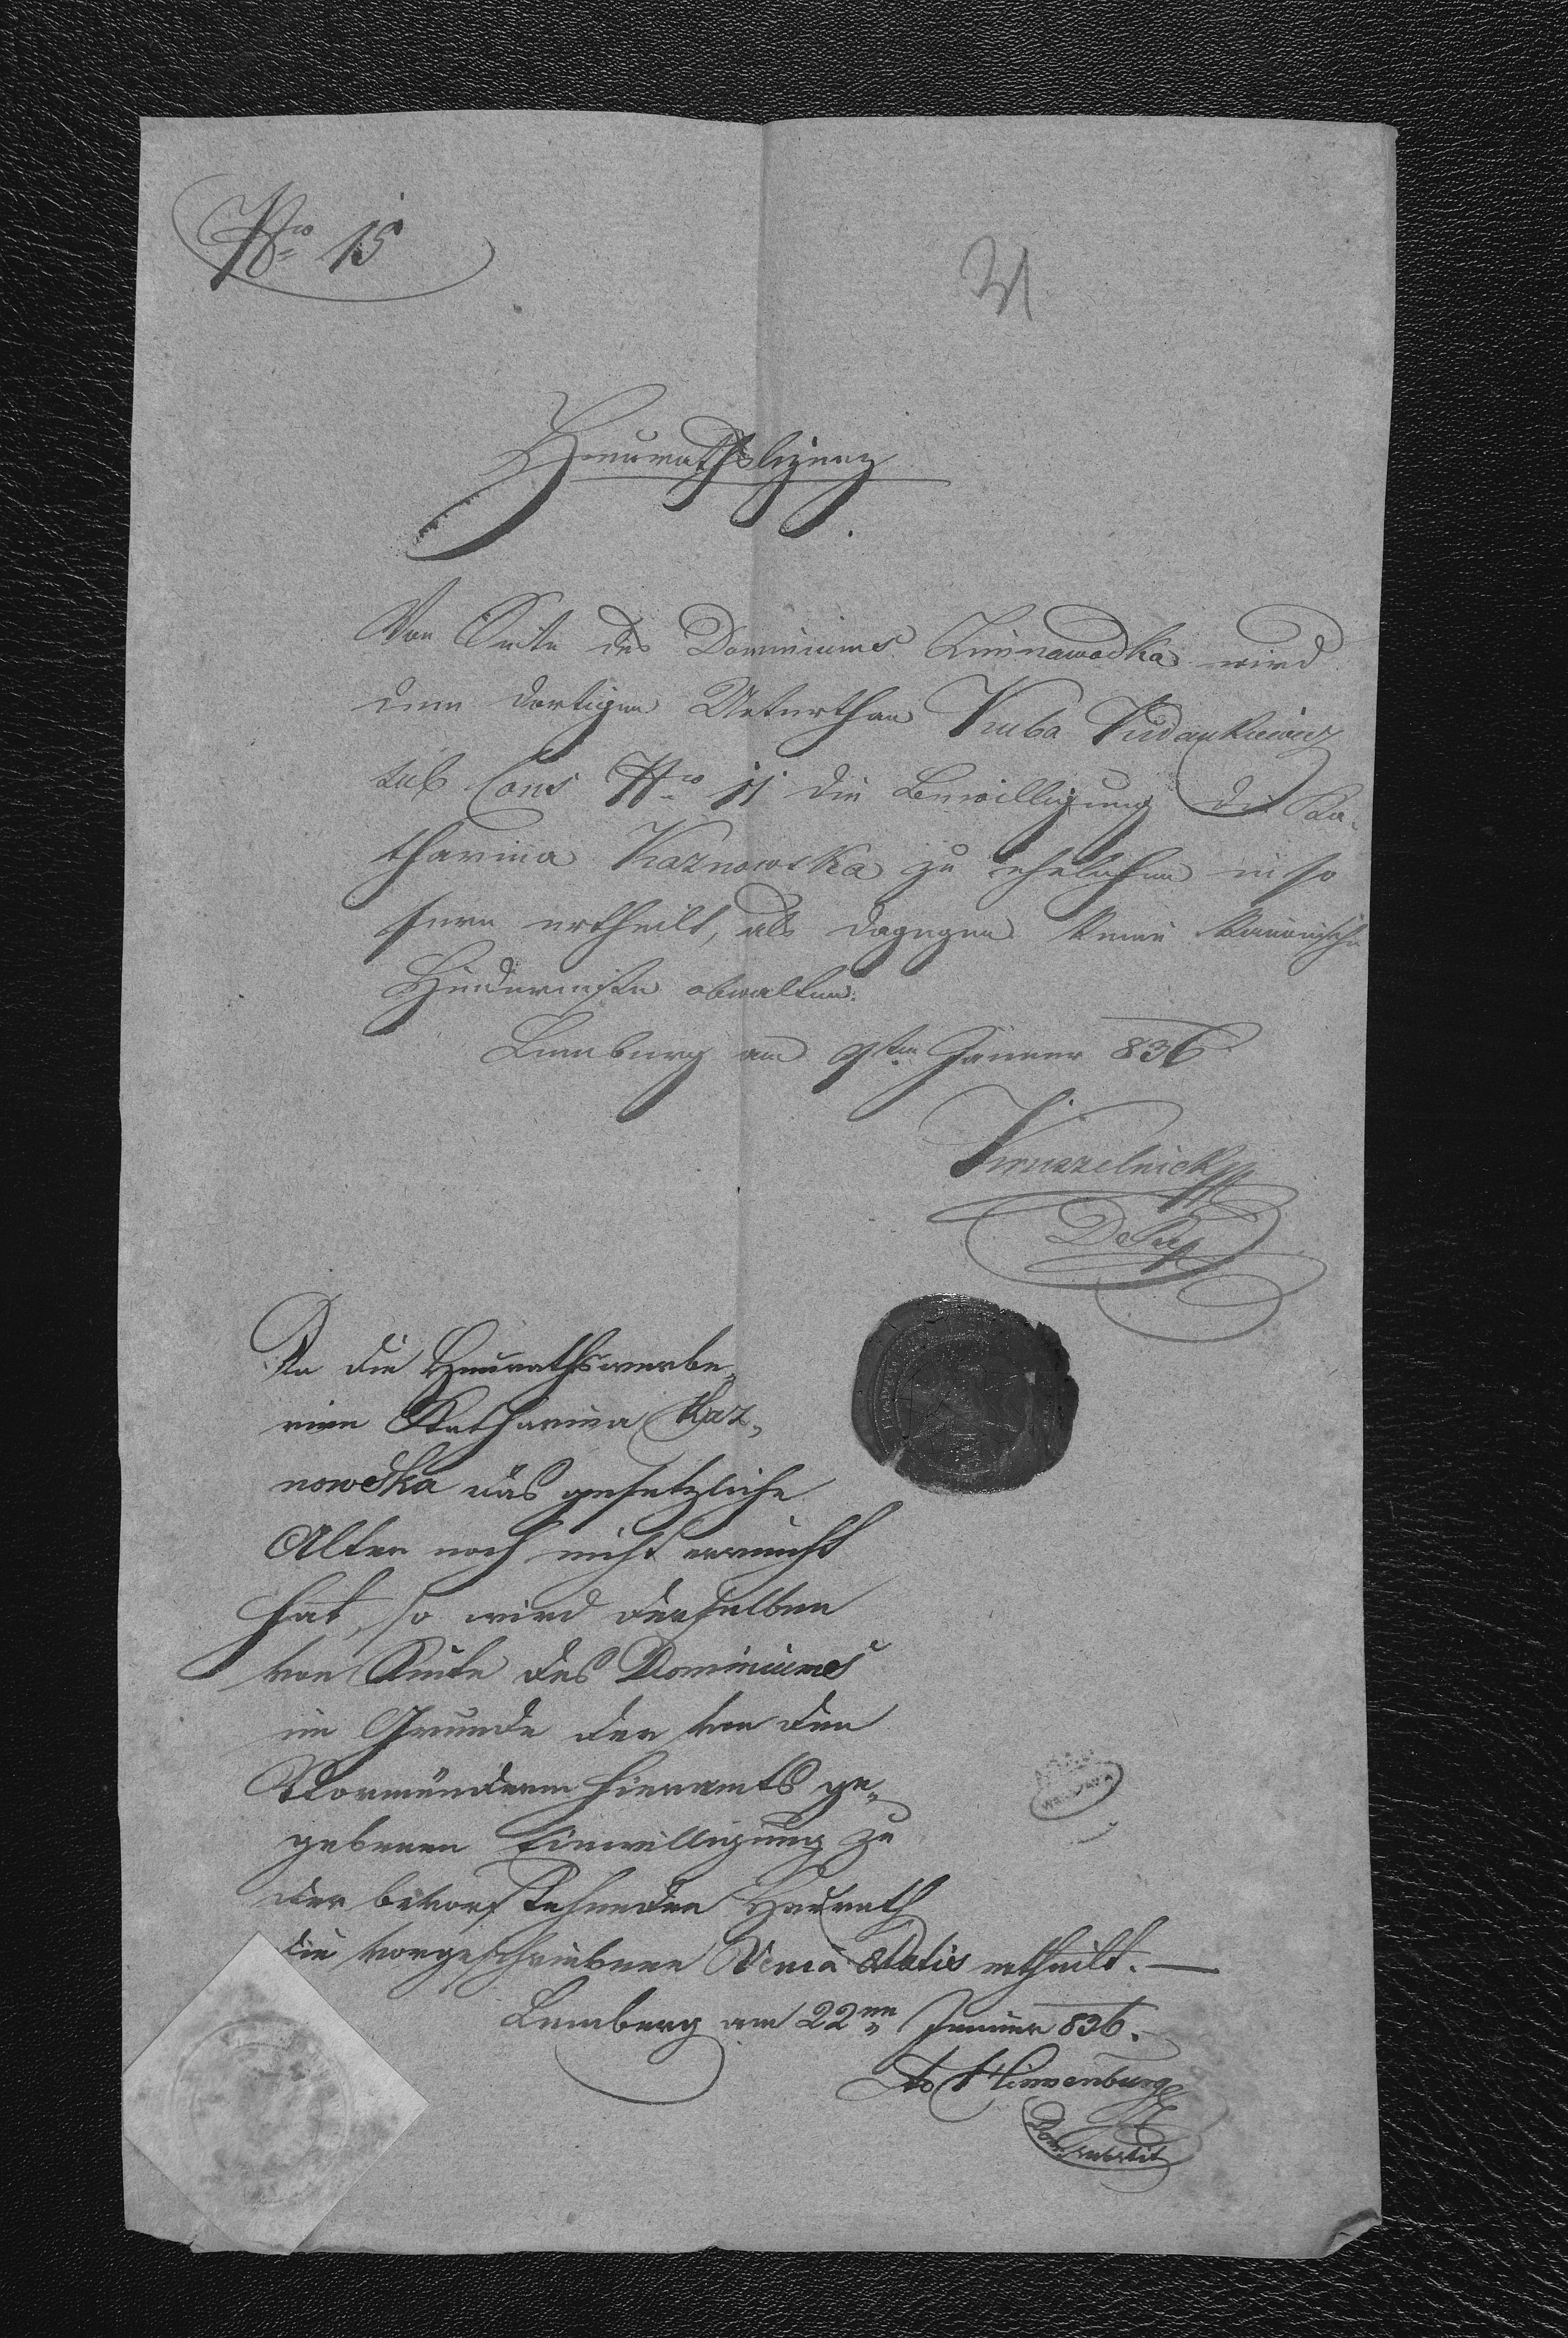 Nro 15
31
Heurathslizenz
Von Seite des Dominiums Zimnawodka wird
dem dortigen Unterthan Kuba
sub Cons Nro 11 die Bewilligung die Ka-
tharina Kaznowska zu ehelichen in so
fern ertheilt, als dagegen keine kanonische
Hindernisse obwalten.
Lemberg am 9ten Jänner 836
Kruszelnicki
Da die Heurathswerbe-
rinn Katharina Kaz-
nowska das gesetzliche
Alter noch nicht erreicht
hat, so wird derselben
von Seite des Dominiums
im Grunde der von den
Vormündern hieramts ge-
gebenen Einwilligung zu
der bevorstehenden Heurath
die vorgeschriebene Venia Aetatis ertheilt. —
Lemberg am 22ten Jänner 836.